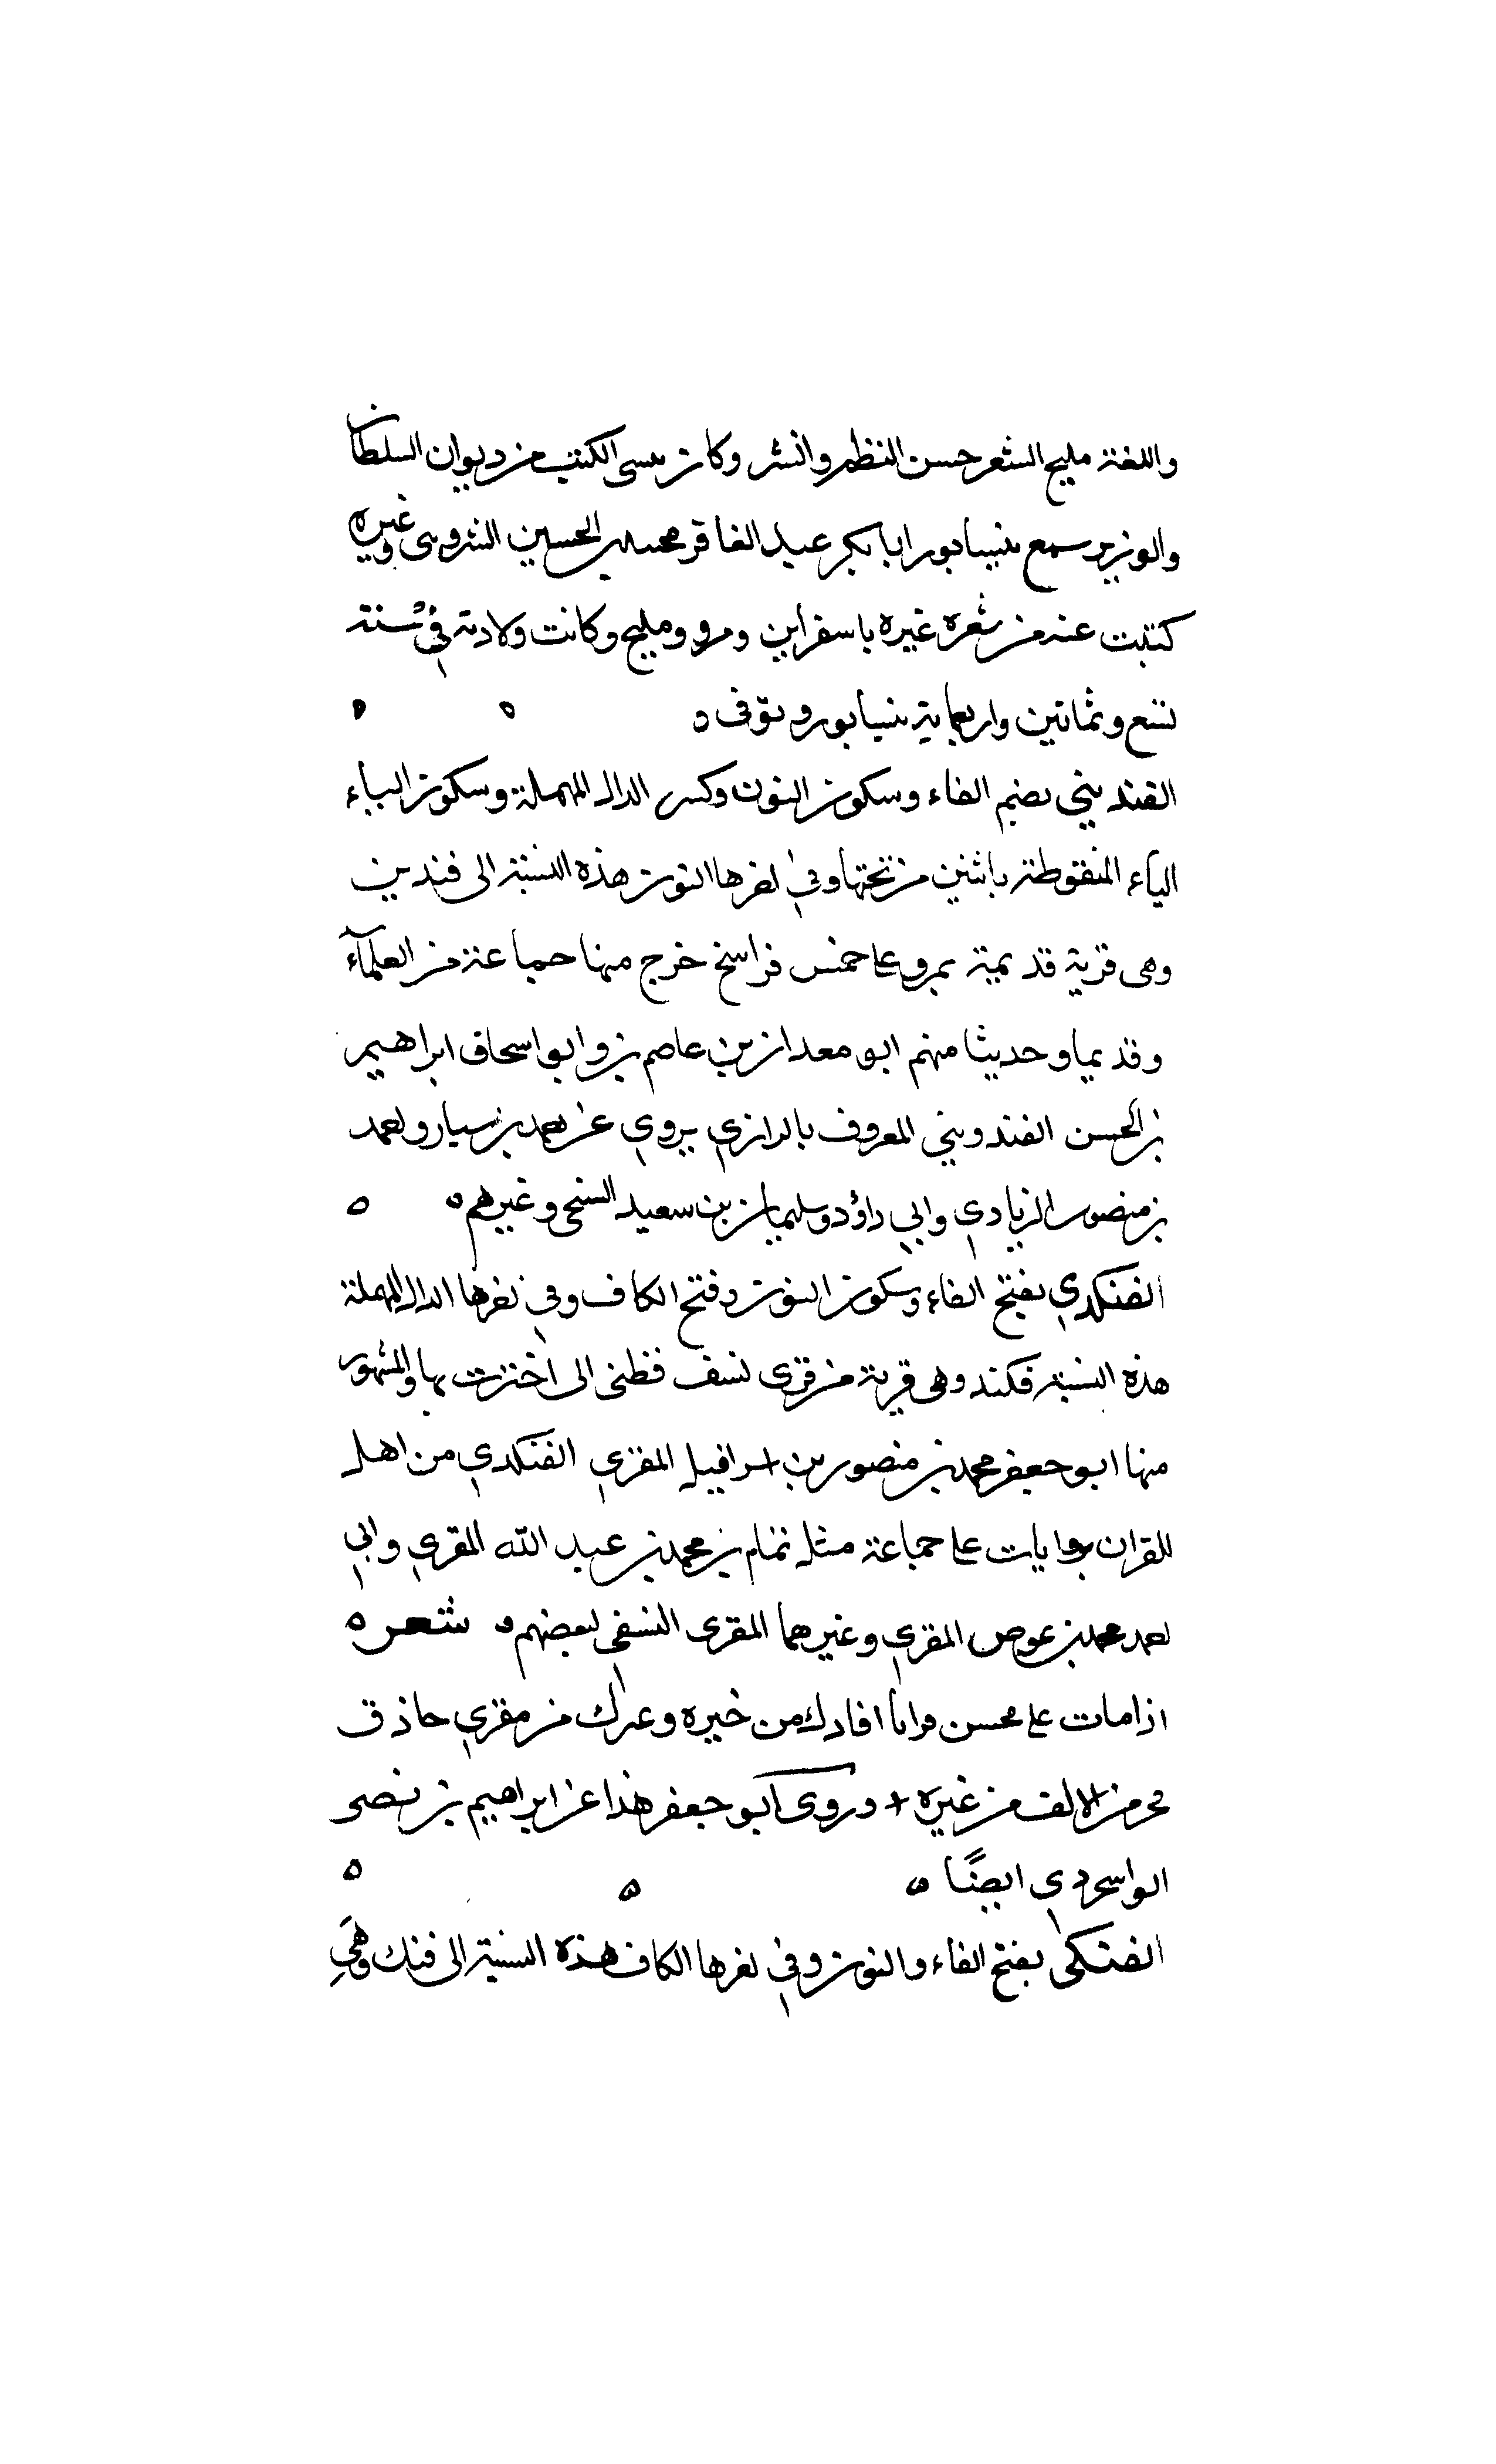 واللغة مليح الشعر حسن النظم والنثر وكان ينسى الكتب من ديوان السلطان
والوزير سمع بنيسابور ابا بكر عبد الغافر محمد بن الحسين الشروى وغيره
كتبت عنه من شعره غيره باسفراين ومرو ومليح وكانت ولادته في سنة
تسع وثمانين واربعماية بنيسابور وتوفى ه
الفنديني بضم الفاء وسكون النون وكسر الدال المهملة وسكون الباء
الياء المنقوطة باثنين من تحتها وفي اخرها النون هذه النسبة الى فندين
وهى قرية قديمة بمرو على خمس فراسخ خرج منها جماعة من العلمآء
وقديما وحديثا منهم ابو معدان بن عاصم بن وابو اسحاق ابراهيم
بن الحسن الفندوينى المعروف بالرازي يروي عن احمد بن سيار واحمد
بن منصور الزيادي وابي داؤد وسليمان بن سعيد السنجى وغيرهم ه
الفنكدي بفتح الفاء وسكون النون وفتح الكاف وفي اخرها الدال المهملة
هذه النسبة فكند وهى قرية من قرى نسف فظنى الى اخترت بها والمشهور
منها ابو جعفر محمد بن منصور بن اسرافيل المقري الفنكدي من اهل
للقران بروايات على جماعة مثل تمام بن محمد بن عبد الله المقري وابي
احمد محمد بن عوص المقري وغيرهما المقرى النسفى لبعضهم ه شعر ه
اذا مات على محسن قرانا افادك من خيره وعرك من مقري حاذق
من الالف من غيره وروى ابو جعفر هذا عن ابراهيم بن نصر
ايضًا ه
الفنكى بفتح الفاء والنون وفي اخرها الكاف هذه النسبة الى فنك وهي